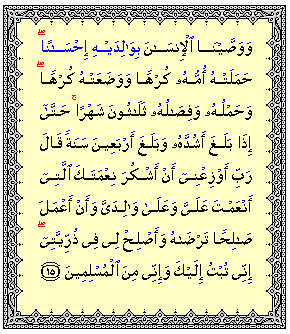 وَوَصَّيْنَا ٱلْإِنسَـٰنَ بِوَٰلِدَيْهِ إِحْسَـٰنًا ۖ
حَمَلَتْهُ أُمُّهُۥ كُرْهًا وَوَضَعَتْهُ كُرْهًا ۖ
وَحَمْلُهُۥ وَفِصَـٰلُهُۥ ثَلَـٰثُونَ شَهْرًا ۚ حَتَّىٰٓ
إِذَا بَلَغَ أَشُدَّهُۥ وَبَلَغَ أَرْبَعِينَ سَنَةً قَالَ
رَبِّ أَوْزِعْنِىٓ أَنْ أَشْكُرَ نِعْمَتَكَ ٱلَّتِىٓ
أَنْعَمْتَ عَلَىَّ وَعَلَىٰ وَٰلِدَىَّ وَأَنْ أَعْمَلَ
صَـٰلِحًا تَرْضَىٰهُ وَأَصْلِحْ لِى فِى ذُرِّيَّتِىٓ ۖ
إِنِّى تُبْتُ إِلَيْكَ وَإِنِّى مِنَ ٱلْمُسْلِمِينَ ﴿١٥﴾